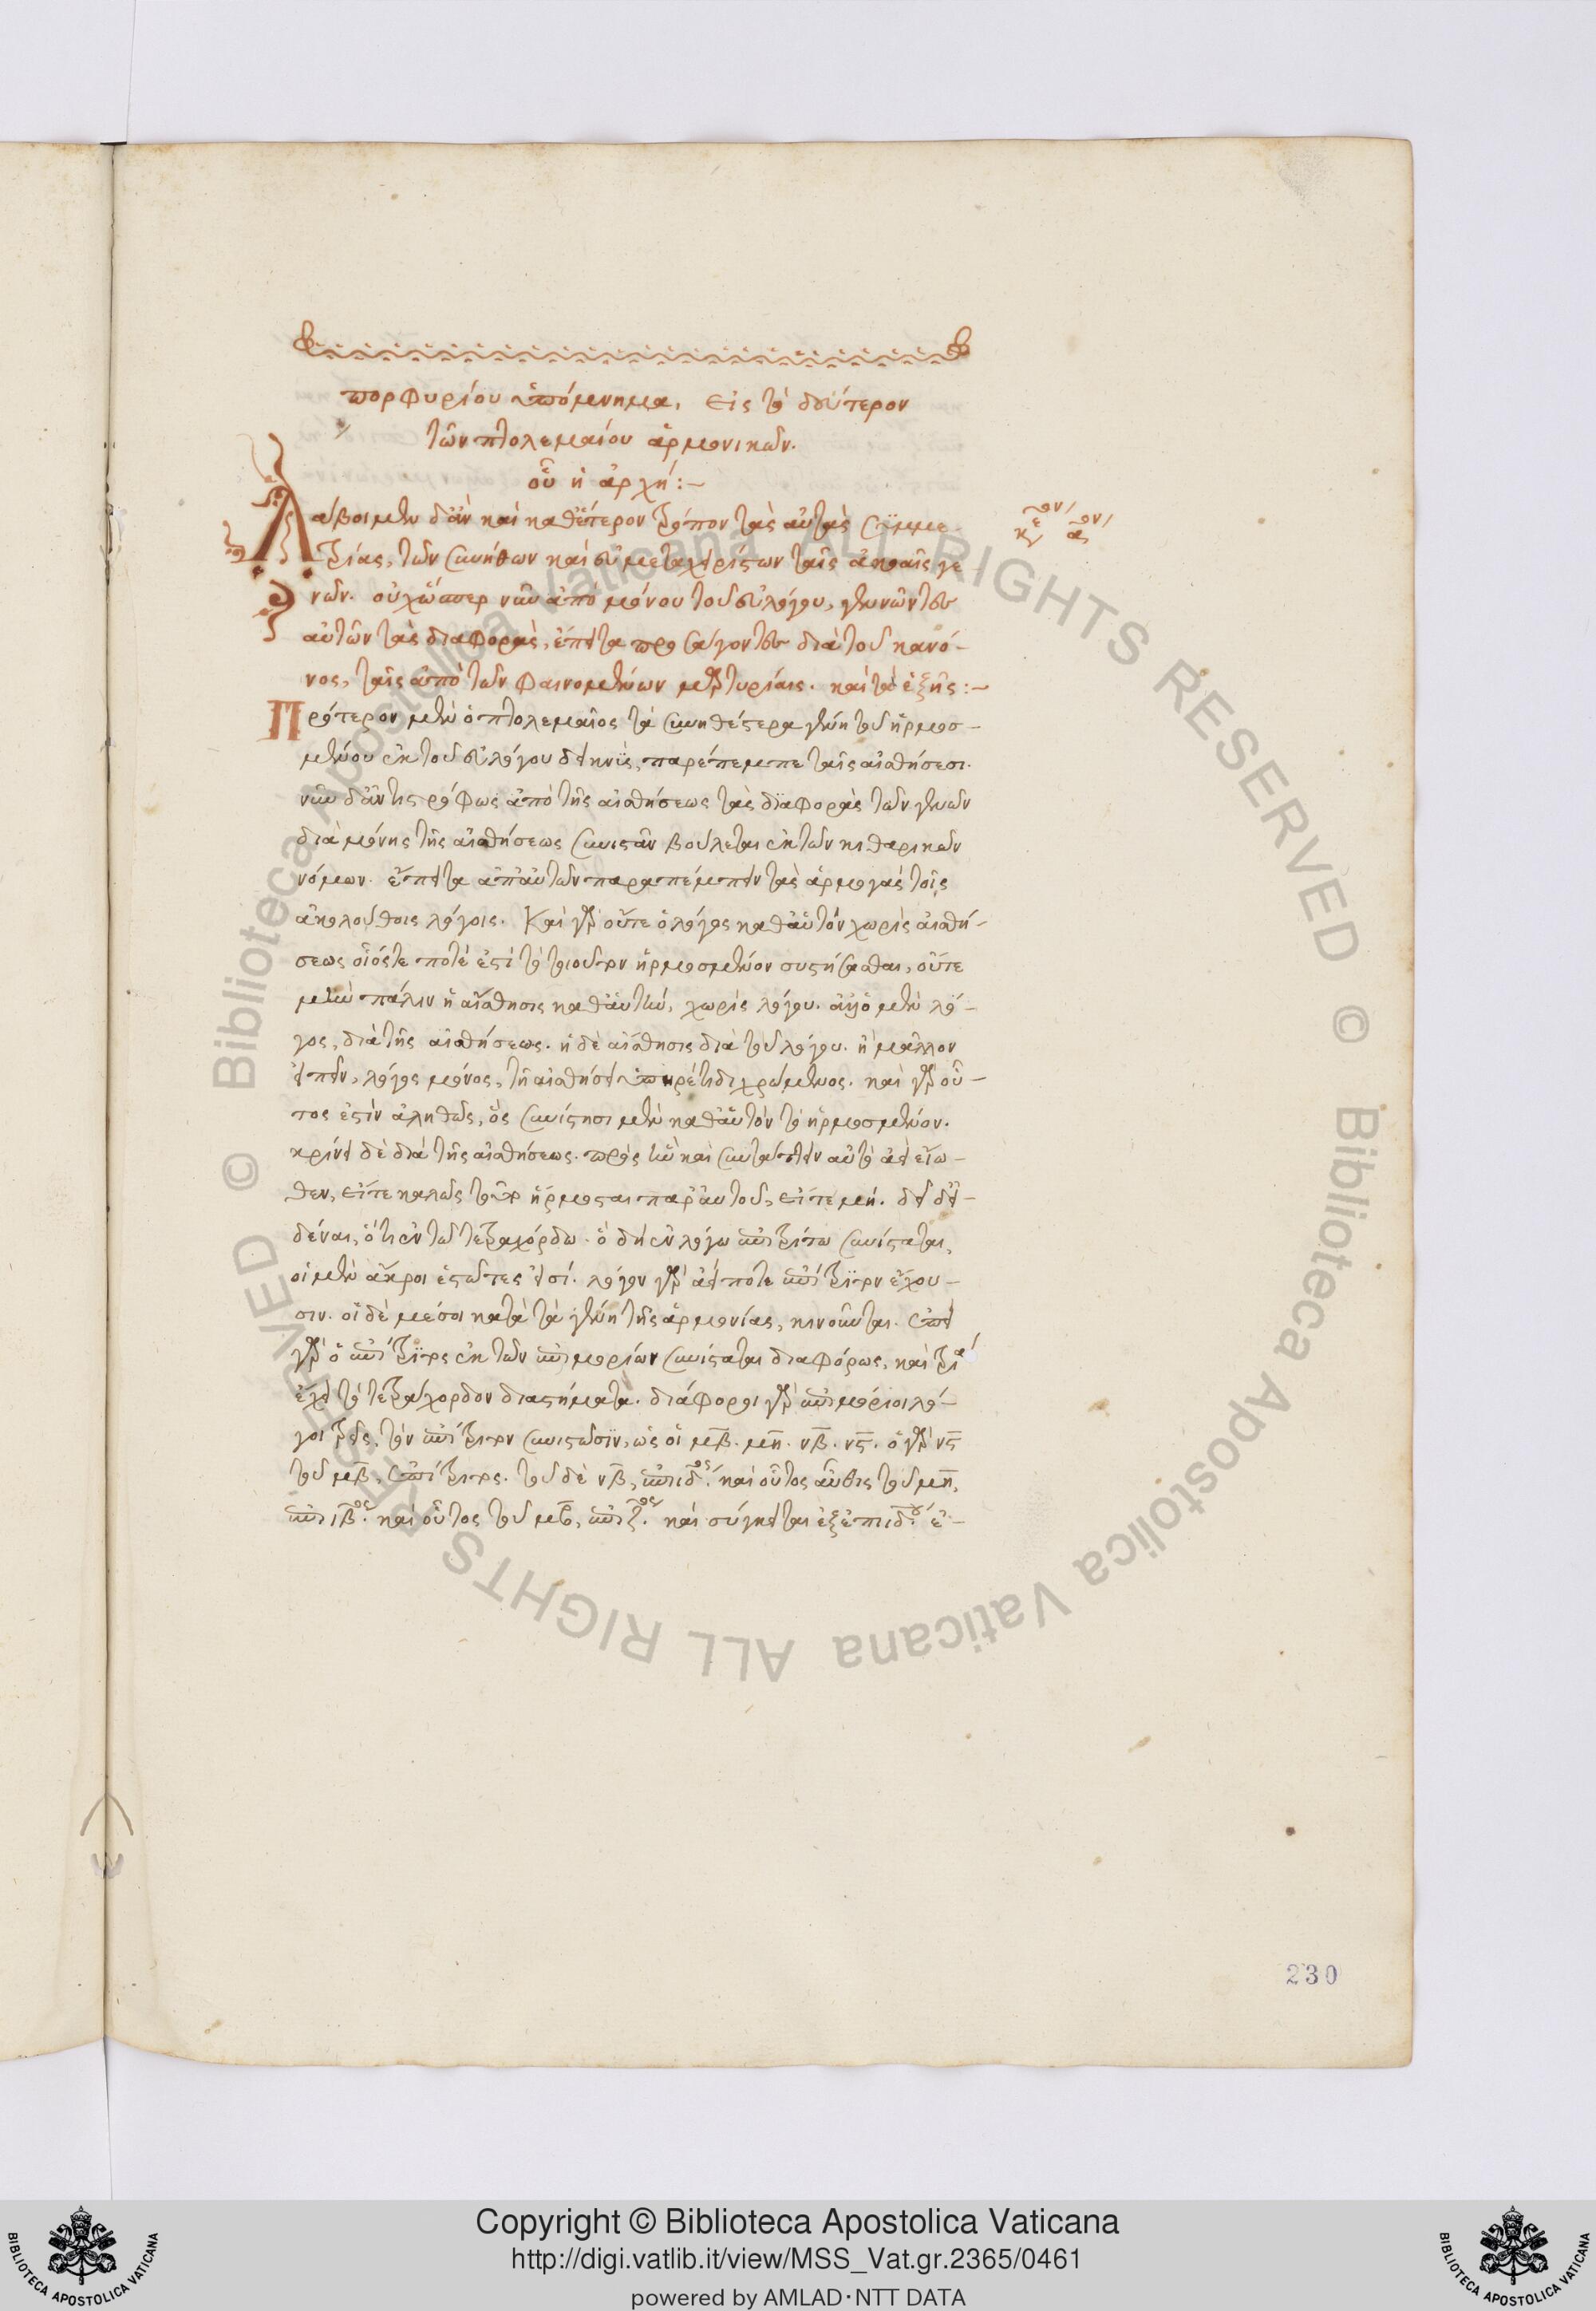 πορφυρίου ὑπόμνημα, εἰς τὸ δεύτερον
τῶν πτολεμαίου ἁρμονικῶν.
οὗ ἡ ἀρχή :~
Λάβοιμεν δ' ἂν καὶ καθ' ἕτερον τρόπον τὰς αὐτὰς συμμε-
τρίας, τῶν συνήθων καὶ εὐμεταχειρίστων ταῖς ἀκοαῖς γε
νῶν. οὐχ ὥσπερ νῦν ἀπὸ μόνου τοῦ εὐλόγου, γεννῶντες
αὐτῶν τὰς διαφορὰς, ἔπειτα προσάγοντες διὰ τοῦ κανό-
νος, ταῖς ἀπὸ τῶν φαινομένων μαρτυρίαις. καὶ τὰ ἑξῆς :~
κεφάλαιον αον
Πρότερον μὲν ὁ πτολεμαῖος τὰ συνηθέστερα γένη τοῦ ἡρμοσ-
μένου ἐκ τοῦ εὐλόγου δεικνὺς, παρέπεμπε ταῖς αἰσθήσεσι.
νῦν δ' ἀντιστρόφως ἀπὸ τῆς αἰσθήσεως τὰς διαφορὰς τῶν γενῶν
διὰ μόνης τῆς αἰσθήσεως συνιστᾶν βούλεται ἐκ τῶν κιθαρικῶν
νόμων. ἔπειτα ἀπ' αὐτῶν παραπέμπειν τὰς ἁρμογὰς τοῖς
ἀκολούθοις λόγοις. Καὶ γὰρ οὔτε ὁ λόγος καθ' αὑτὸν χωρὶς αἰσθή-
σεως οἷός τε ποτέ ἐστὶ τὸ τοιοῦτον ἡρμοσμένον συστήσασθαι, οὔτε
μὴν πάλιν ἡ αἴσθησις καθ' αὑτὴν, χωρὶς λόγου. ἀλλ' ὁ μὲν λό-
γος, διὰ τῆς αἰσθήσεως. ἡ δὲ αἴσθησις διὰ τοῦ λόγου. ἢ μᾶλλον
εἰπεῖν, λόγος μόνος, τῇ αἰσθήσει ὑπηρέτιδι χρώμενος. καὶ γὰρ οὗ-
τος ἐστὶν ἀληθῶς, ὃς συνίστησι μὲν καθ' αὑτὸν τὸ ἡρμοσμένον.
κρίνει δὲ διὰ τῆς αἰσθήσεως. πρὸς ἣν καὶ συντάττειν αὐτὸ ἀεὶ εἴω-
θεν, εἴτε καλῶς τοῦτο ἥρμοσται παρ' αὐτοῦ, εἴτε μή. δεῖ δ' εἰ-
δέναι, ὅτι ἐν τῷ τετραχόρδῳ. ὃ δὴ ἐν λόγῳ ἐπιτρίτῳ συνίσταται,
οἱ μὲν ἄκροι ἑστῶτες εἰσί. λόγον γὰρ ἀεί ποτε ἐπίτριτον ἔχου-
σιν. οἱ δὲ μέσοι κατὰ τὰ γένη τῆς ἁρμονίας, κινοῦνται. ἐπεὶ
γὰρ ὁ ἐπίτριτος ἐκ τῶν ἐπιμορίων συνίσταται διαφόρως, καὶ τρία
ἔχει τὸ τετράχορδον διαστήματα. διάφοροι γὰρ ἐπιμόριοι λό-
γοι τρεῖς, τὸν ἐπίτριτον συνιστῶσιν, ὡς οἱ μβ. μη. νβ. νς. ὁ γὰρ νς
τοῦ μβ, ἐπίτριτος. τοῦ δὲ νβ, ἐπιιδος. καὶ οὗτος αὖθις τοῦ μη,
ἐπιιβος. καὶ οὗτος τοῦ μβ, ἐπιζος. καὶ σύγκειται ἐξ ἐπιιδου ἐ-
230
Copyright © Biblioteca Apostolica Vaticana
http://digi.vatlib.it/view/MSS_Vat.gr.2365/0461
powered by AMLAD·NTT DATA
© Biblioteca Apostolica Vaticana ALL RIGHTS RESERVED © Biblioteca Apostolica Vaticana ALL RIGHTS RESERVED
BIBLIOTECA APOSTOLICA VATICANA
BIBLIOTECA APOSTOLICA VATICANA